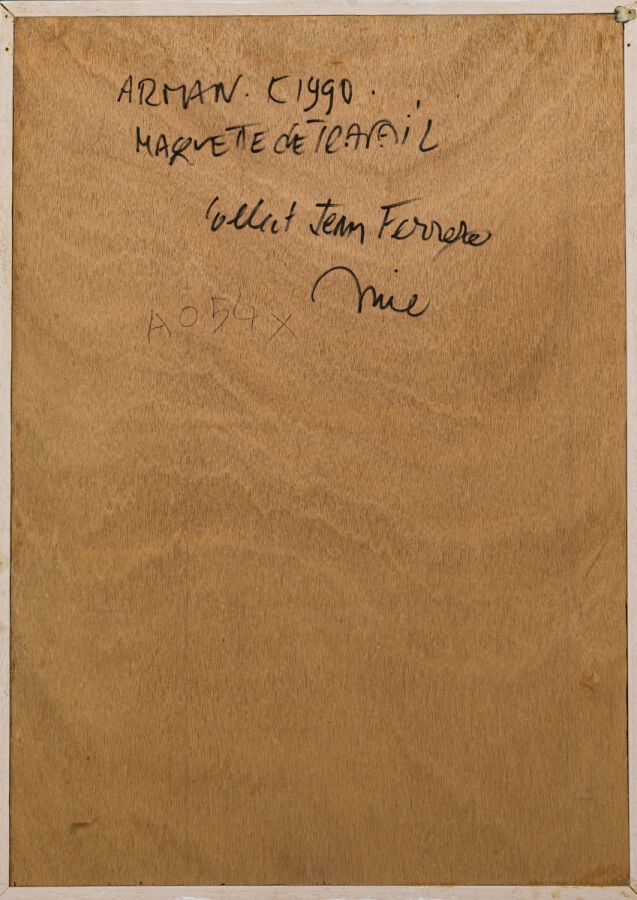 ARMAN. C 1990.
MAQUETTE DE TRAVAIL
Collect Jean Ferrero
Nice
A054X